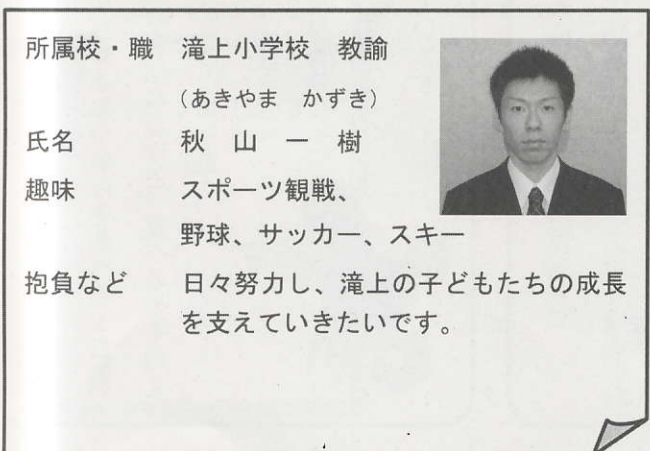 所属校・職 滝上小学校 教諭
(あきやま かずき)
氏名 秋 山 一 樹
趣味 スポーツ観戦、
野球、サッカー、スキー
抱負など 日々努力し、滝上の子どもたちの成長
を支えていきたいです。